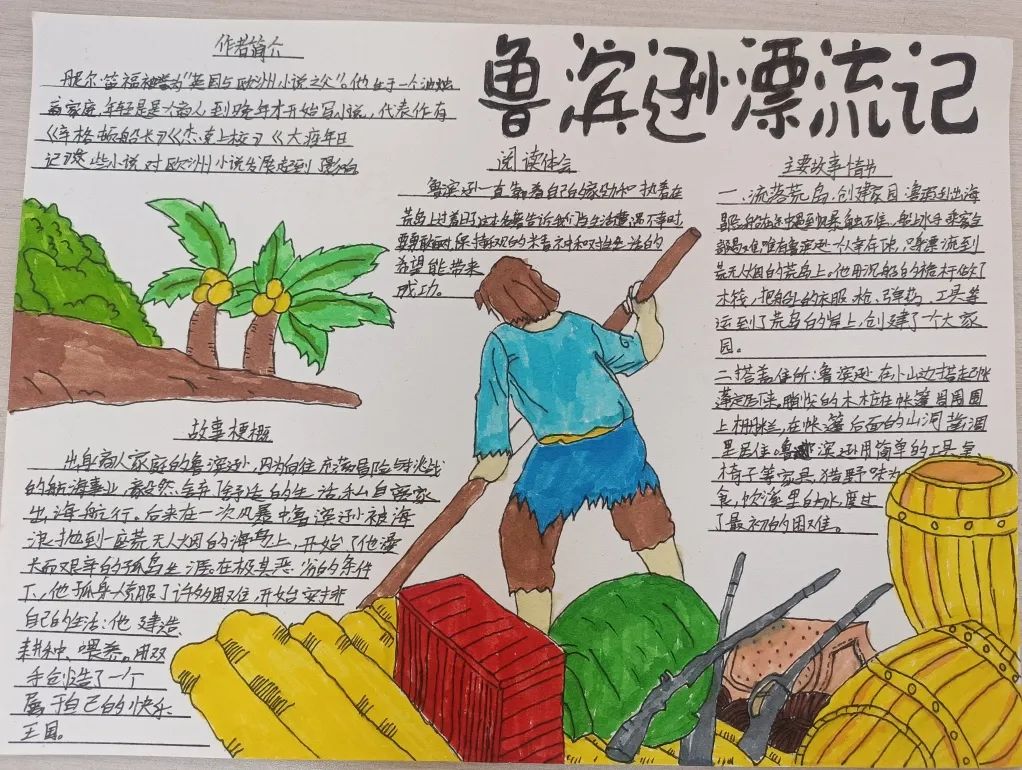 鲁滨逊漂流记
作者简介
丹尼尔·笛福被誉为"英国与欧洲小说之父"。他生于一个油烛
商家庭,年轻是是个商人,到晚年才开始写小说,代表作有
《辛格顿船长》《杰克上校》《大疫年日
记》这些小说对欧洲小说发展起到影响
阅读体会
鲁滨逊一直靠着自己的勤劳和执着在
荒岛上过着日子,这本名著告诉我们当生活遭遇不幸时,
要勇敢面对,保持乐观的 和对生活的
希望能带来
成功。
主要故事情节
一、流落荒岛,创建家园:鲁滨逊出海
船在途中遇到风暴触礁,船上水手乘客全
部遇难,唯有鲁滨逊一人幸存,只身漂流到
荒无人烟的荒岛上。他用沉船的桅杆做了
木筏,把船上的衣服、枪、弹药、工具等
运到了荒岛的岸上,创建了一个大家
园。
二搭盖住所:鲁滨逊在小山边搭起帐
篷定居下来。削尖的木桩在帐篷周围围
上栅栏,在帐篷后面的山洞
里居住。鲁滨逊用简单的工具
椅子等家具,猎野味为
食,饮溪里的水,度过
了最初的困难。
故事梗概
出身商人家庭的鲁滨逊,因为向往充满冒险与挑战
的航海事业,毅然舍弃了舒适的生活,私自离家
出海航行。后来在一次风暴中鲁滨逊被海
浪抛到一座荒无人烟的海岛上,开始了他漫
长而艰辛的孤岛生涯,在极其恶劣的条件
下,他孤身一人克服了许多困难,开始安排
自己的生活:他建造、
耕种、喂养。用双
手创造了一个
属于自己的快乐
王国。